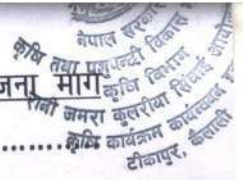 नेपाल सरकार
कृषि तथा पशुपन्छी विकास
कृषि विभाग
जना माग
रानी जमरा कुलरीया सिंचाई आयोजना
कृषि कार्यक्रम कार्यान्वयन
टीकापुर, कैलाली